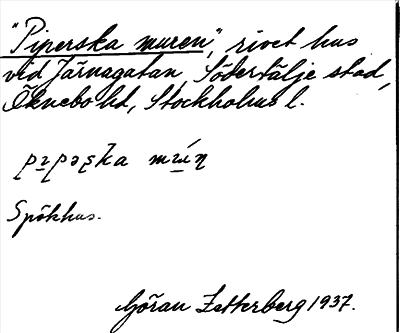 "Piperska muren", rivet hus
vid Järnagatan, Södertälje stad,
Öknebo hd, Stockholms l.
Spökhus.
Göran Zetterberg 1937.